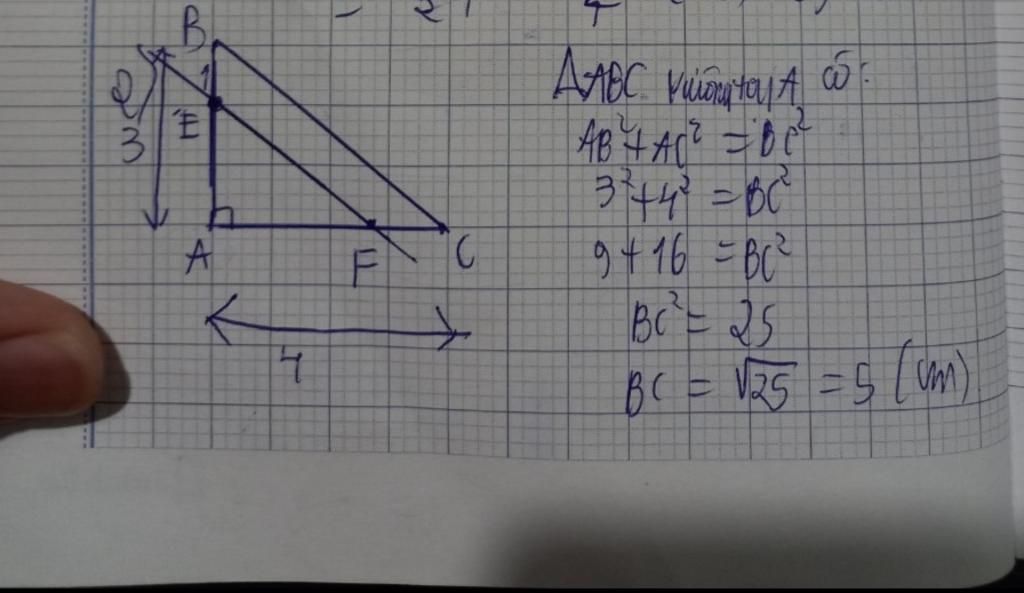 B
1
2
E
3
A
F
C
4
ΔABC vuông tại A có:
AB² + AC² = BC²
3² + 4² = BC²
9 + 16 = BC²
BC² = 25
BC = √25 = 5 (cm)